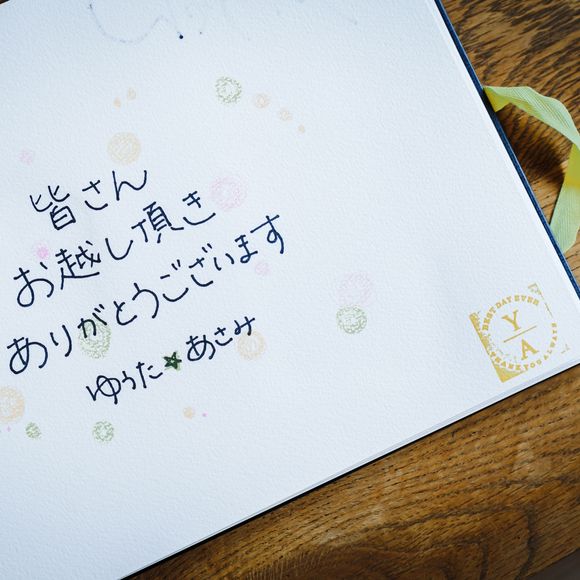 皆さん
お越し頂き
ありがとうございます
ゆうた★あさみ
BEST DAY EVER
Y
A
THANK YOU ALWAYS